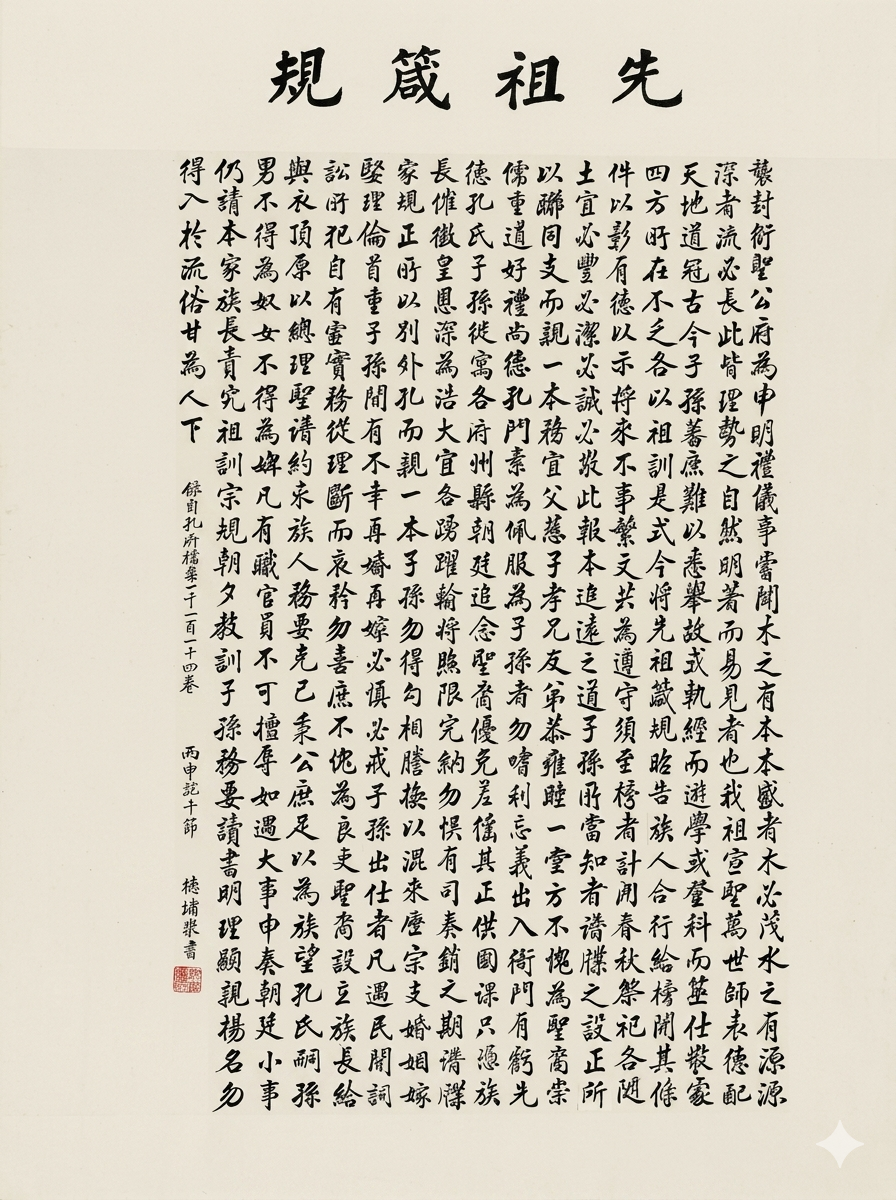 先祖箴規
襲封衍聖公府為申明禮儀事嘗聞木之有本本盛者木必茂水之有源源
深者流必長此皆理勢之自然明著而易見者也我祖宣聖萬世師表德配
天地道冠古今子孫蕃庶難以悉舉故或執經而遊學或登科而筮仕散處
四方所在不乏各以祖訓是式今將先祖箴規昭告族人合行給榜開其條
件以彰有德以示將來不事繁文共為遵守須至榜者計開春秋祭祀各隨
土宜必豐必潔必誠必敬此報本追遠之道子孫所當知者譜牒之設正所
以聯同支而親一本務宜父慈子孝兄友弟恭雍睦一堂方不愧為聖裔崇
儒重道好禮尚德孔門素為佩服為子孫者勿嗜利忘義出入衙門有虧先
德孔氏子孫徙寓各府州縣朝廷追念聖裔優免差徭其正供國課只憑族
長催徵皇恩深為浩大宜各踴躍輸將照限完納勿悮有司奏銷之期譜牒
家規正所以別外孔而親一本子孫勿得勾相謄換以混來歷宗支婚姻嫁
娶理倫首重子孫間有不幸再婚再嫁必慎必戒子孫出仕者凡遇民間詞
訟所犯自有虛實務從理斷而哀矜勿喜庶不愧為良吏聖裔設立族長給
與衣頂原以總理聖請約束族人務要克己秉公庶足以為族望孔氏嗣孫
男不得為奴女不得為婢凡有職官員不可擅辱如遇大事申奏朝廷小事
仍請本家族長責究祖訓宗規朝夕教訓子孫務要讀書明理顯親揚名勿
得入於流俗甘為人下
錄自孔府檔案一千一百一十四卷 丙申詑午節 書